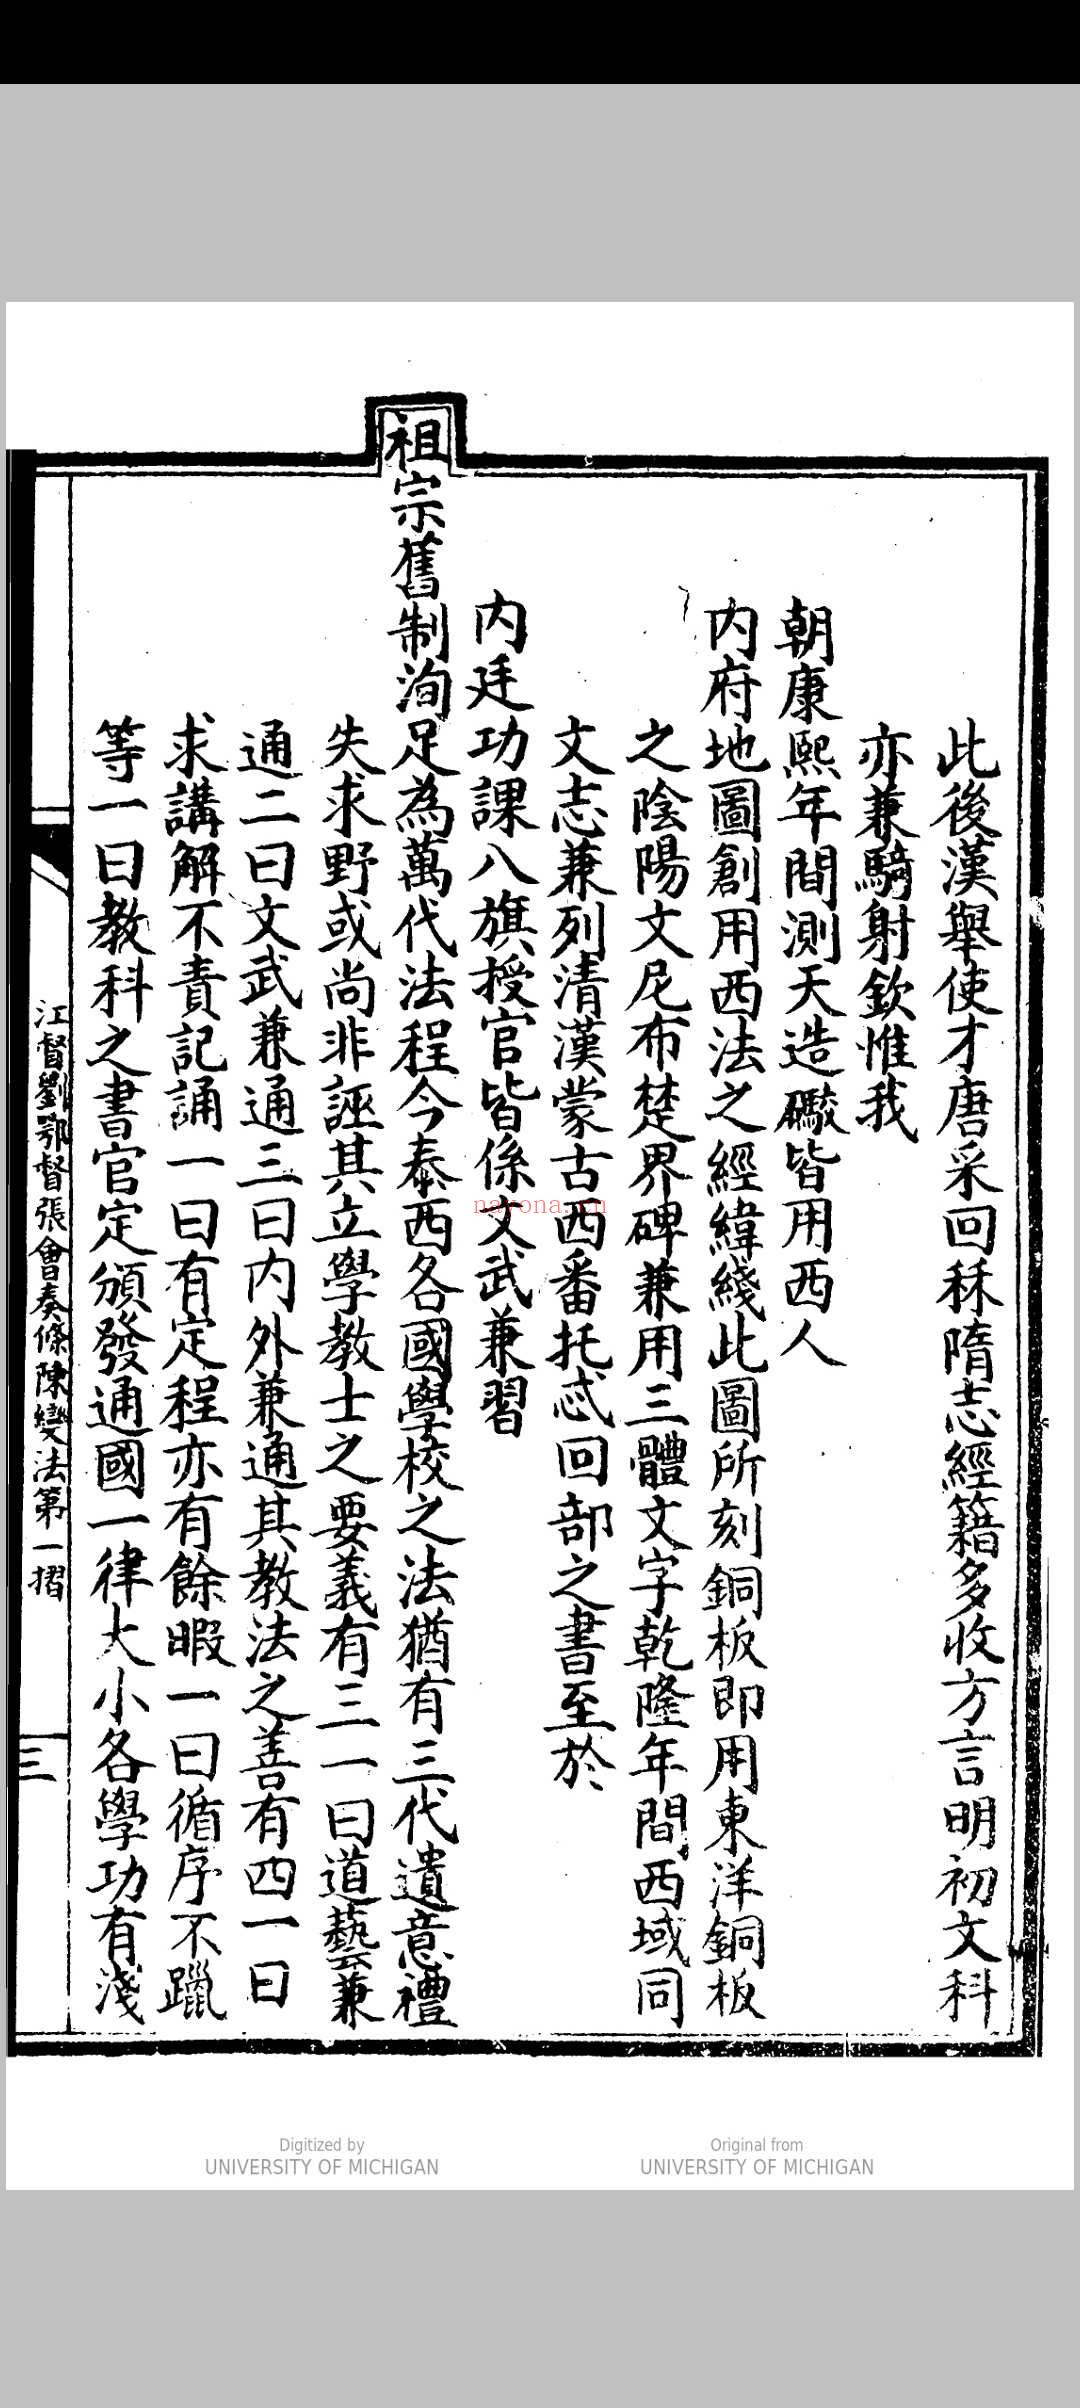 此後漢舉使才唐采回秝隋志經籍多收方言明初文科
亦兼騎射欽惟我
朝康熙年間測天造礮皆用西人
内府地圖創用西法之經緯綫此圖所刻銅板即用東洋銅板
之陰陽文尼布楚界碑兼用三體文字乾隆年間西域同
文志兼列清漢蒙古西番托忒回部之書至於
内廷功課八旗授官皆係文武兼習
祖宗舊制洵足為萬代法程今泰西各國學校之法猶有三代遺意禮
失求野或尚非誣其立學教士之要義有三一曰道藝兼
通二曰文武兼通三曰内外兼通其教法之善有四一曰
求講解不責記誦一曰有定程亦有餘暇一曰循序不躐
等一曰教科之書官定頒發通國一律大小各學功有淺
江督劉鄂督張會奏條陳變法第一摺
三
nayona.cn
Digitized by
UNIVERSITY OF MICHIGAN
Original from
UNIVERSITY OF MICHIGAN